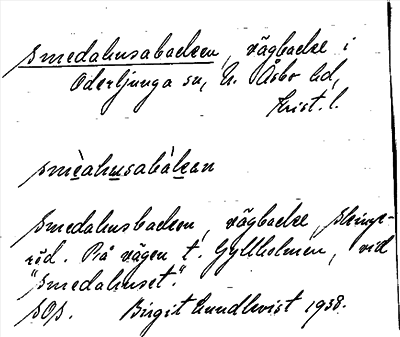 Smedahusabacken, vägbacke i
Oderljunga sn, N. Åsbo hd,
Krist. l.
smèahusabàkan
Smedahusbacken, vägbacke,
röd. På vägen t. Gyllholmen, vid
"Smedahuset."
SOS. Birgit Lundkvist 1938.